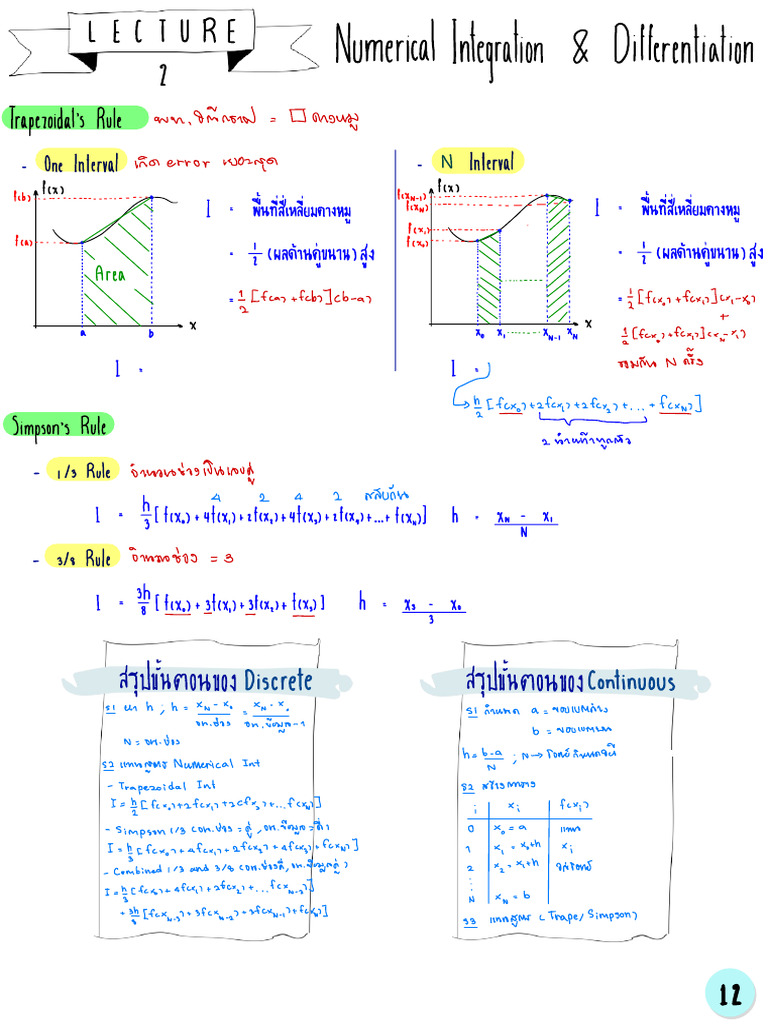 LECTURE
2
Numerical Integration & Differentiation
Trapezoidal's Rule พท.ใต้กราฟ = □ คางหมู
- One Interval เกิด error เยอะสุด
f(x)
f(b)
f(a)
Area
a b x
I = พื้นที่สี่เหลี่ยมคางหมู
= 1/2 (ผลด้านคู่ขนาน) สูง
= 1/2 [f(a)+f(b)](b-a)
I =
- N Interval
f(x)
f(x_N-1)
f(x_N)
f(x_1)
f(x_0)
x_0 x_1 ........ x_N-1 x_N x
I = พื้นที่สี่เหลี่ยมคางหมู
= 1/2 (ผลด้านคู่ขนาน) สูง
= 1/2 [f(x_0)+f(x_1)](x_1-x_0)
+
1/2 [f(x_0)+f(x_1)](x_N-x_1)
รวมกัน N ครั้ง
I =
h/2 [f(x_0)+2f(x_1)+2f(x_2)+...+f(x_N)]
Simpson's Rule
- 1/3 Rule จำนวนช่วงเป็นเลขคู่
4 2 4 2 สลับกัน
I = h/3 [f(x_0)+4f(x_1)+2f(x_2)+4f(x_3)+2f(x_4)+...+f(x_N)] h = x_N - x_1 / N
- 3/8 Rule จำนวนช่อง = 3
I = 3h/8 [f(x_0)+3f(x_1)+3f(x_2)+f(x_3)] h = x_3 - x_0 / 3
สรุปขั้นตอนของ Discrete
S1 หา h ; h = x_N - x_0 / จน.ช่วง = x_N - x_0 / จน.ข้อมูล-1
N = จน.ช่วง
S2 แทนสูตร Numerical Int
- Trapezoidal Int
I = h/2 [f(x_0)+2f(x_1)+2f(x_2)+...f(x_N)]
- Simpson 1/3 (จน.ช่วง = คู่, จน.ข้อมูล = คี่)
I = h/3 [f(x_0)+4f(x_1)+2f(x_2)+4f(x_3)+f(x_N)]
- Combined 1/3 and 3/8 (จน.ช่วงคี่, จน.ข้อมูลคู่)
I = h/3 [f(x_0)+4f(x_1)+2f(x_2)+...f(x_N-3)]
+ 3h/8 [f(x_N-3)+3f(x_N-2)+3f(x_N-1)+f(x_N)]
สรุปขั้นตอนของ Continuous
S1 กำหนด a = ขอบเขตล่าง
b = ขอบเขตบน
h = b-a / N ; N → โจทย์กำหนดให้
S2 สร้างตาราง
i x_i f(x_i)
0 x_0 = a แทน
1 x_1 = x_0+h x_i
2 x_2 = x_1+h
N x_N = b
S3 แทนสูตร (Trape/Simpson)
12